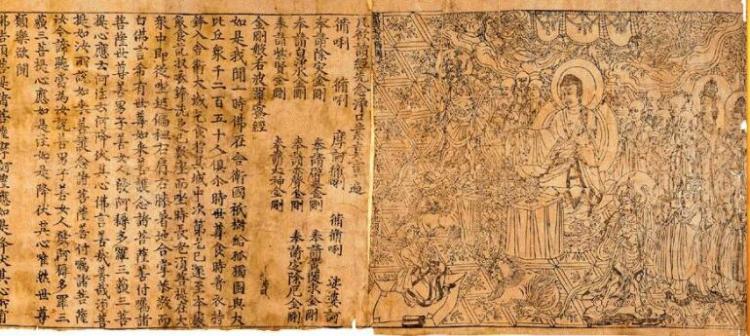 凡欲讀經先念淨口業真言一遍
脩唎 脩唎 摩訶脩唎 脩脩唎 娑婆訶
奉請除災金剛 奉請辟毒金剛 奉請黃隨求金剛
奉請白淨水金剛 奉請赤聲金剛 奉請定除厄金剛
奉請紫賢金剛 奉請大神金剛
金剛般若波羅蜜經
如是我聞一時佛在舍衛國祇樹給孤獨園與大
比丘眾千二百五十人俱尒時世尊食時著衣持
鉢入舍衛大城乞食於其城中次第乞已還至本處
飯食訖收衣鉢洗足已敷座而坐時長老須菩提在大
眾中即從座起偏袒右肩右膝著地合掌恭敬而
白佛言希有世尊如來善護念諸菩薩善付囑諸
菩薩世尊善男子善女人發阿耨多羅三藐三菩
提心應云何住云何降伏其心佛言善哉善哉須菩
提如汝所說如來善護念諸菩薩善付囑諸菩薩
汝今諦聽當為汝說善男子善女人發阿耨多羅三
藐三菩提心應如是住如是降伏其心唯然世尊
願樂欲聞
佛告須菩提諸菩薩摩訶薩應如是降伏其心所有